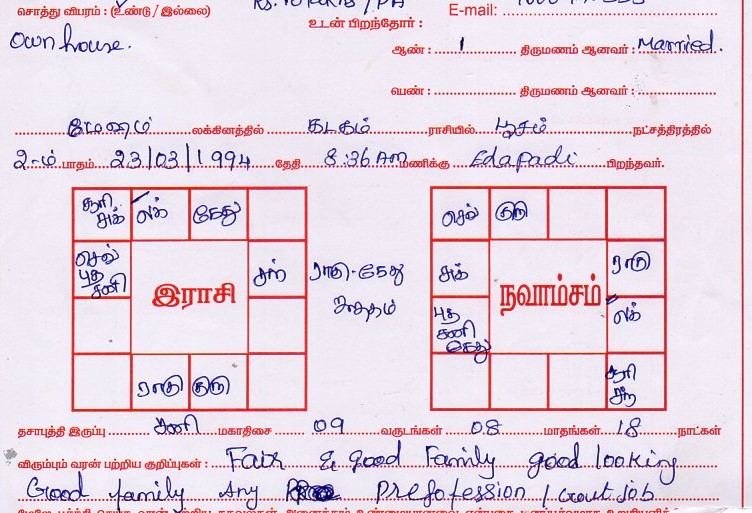 சொத்து விபரம் : (உண்டு / இல்லை) E-mail:
Own house. உடன் பிறந்தோர் :
ஆண் : 1 திருமணம் ஆனவர் : Married.
பெண் : திருமணம் ஆனவர் :
மேஷம் லக்கினத்தில் கடகம் ராசியில் பூசம் நட்சத்திரத்தில்
2-ம் பாதம் 23/03/1994 தேதி 8:36 AM மணிக்கு Edapadi பிறந்தவர்.
சூரி சுக் லக் கேது
செவ் புத சனி
சந்
இராசி
ராகு குரு
ராகு-கேது
செவ் குரு
சுக்
ராகு
நவாம்சம்
புத சனி கேது
லக்
சூரி சந்
தசாபுத்தி இருப்பு சனி மகாதிசை 09 வருடங்கள் 08 மாதங்கள் 18 நாட்கள்
விரும்பும் வரன் பற்றிய குறிப்புகள் : Fair & good Family good looking
Good family Any Prefofession / Govt job